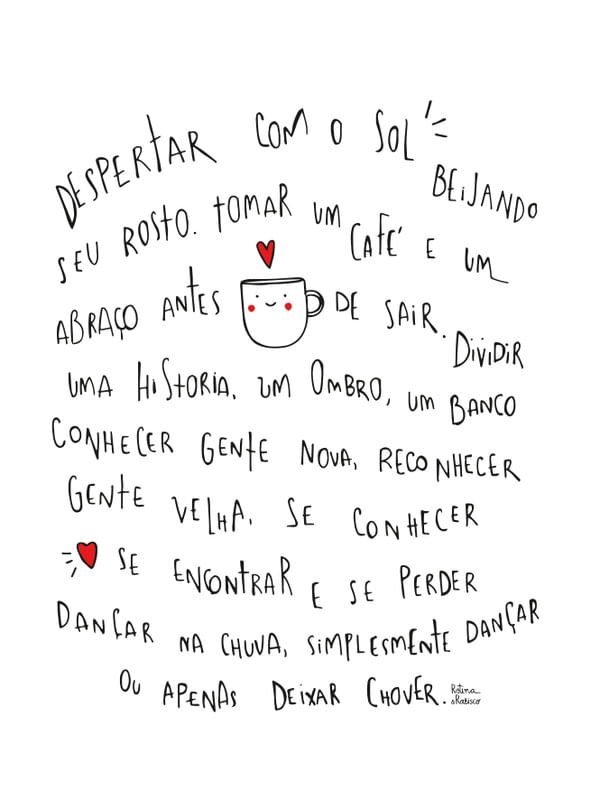 DESPERTAR COM O SOL BEIJANDO
SEU ROSTO. TOMAR UM CAFÉ E UM
ABRAÇO ANTES DE SAIR. DIVIDIR
UMA HISTORIA. UM OMBRO, UM BANCO
CONHECER GENTE NOVA, RECONHECER
GENTE VELHA. SE CONHECER
SE ENCONTRAR E SE PERDER
DANÇAR NA CHUVA, SIMPLESMENTE DANÇAR
OU APENAS DEIXAR CHOVER.
Rotina
&Rabisco